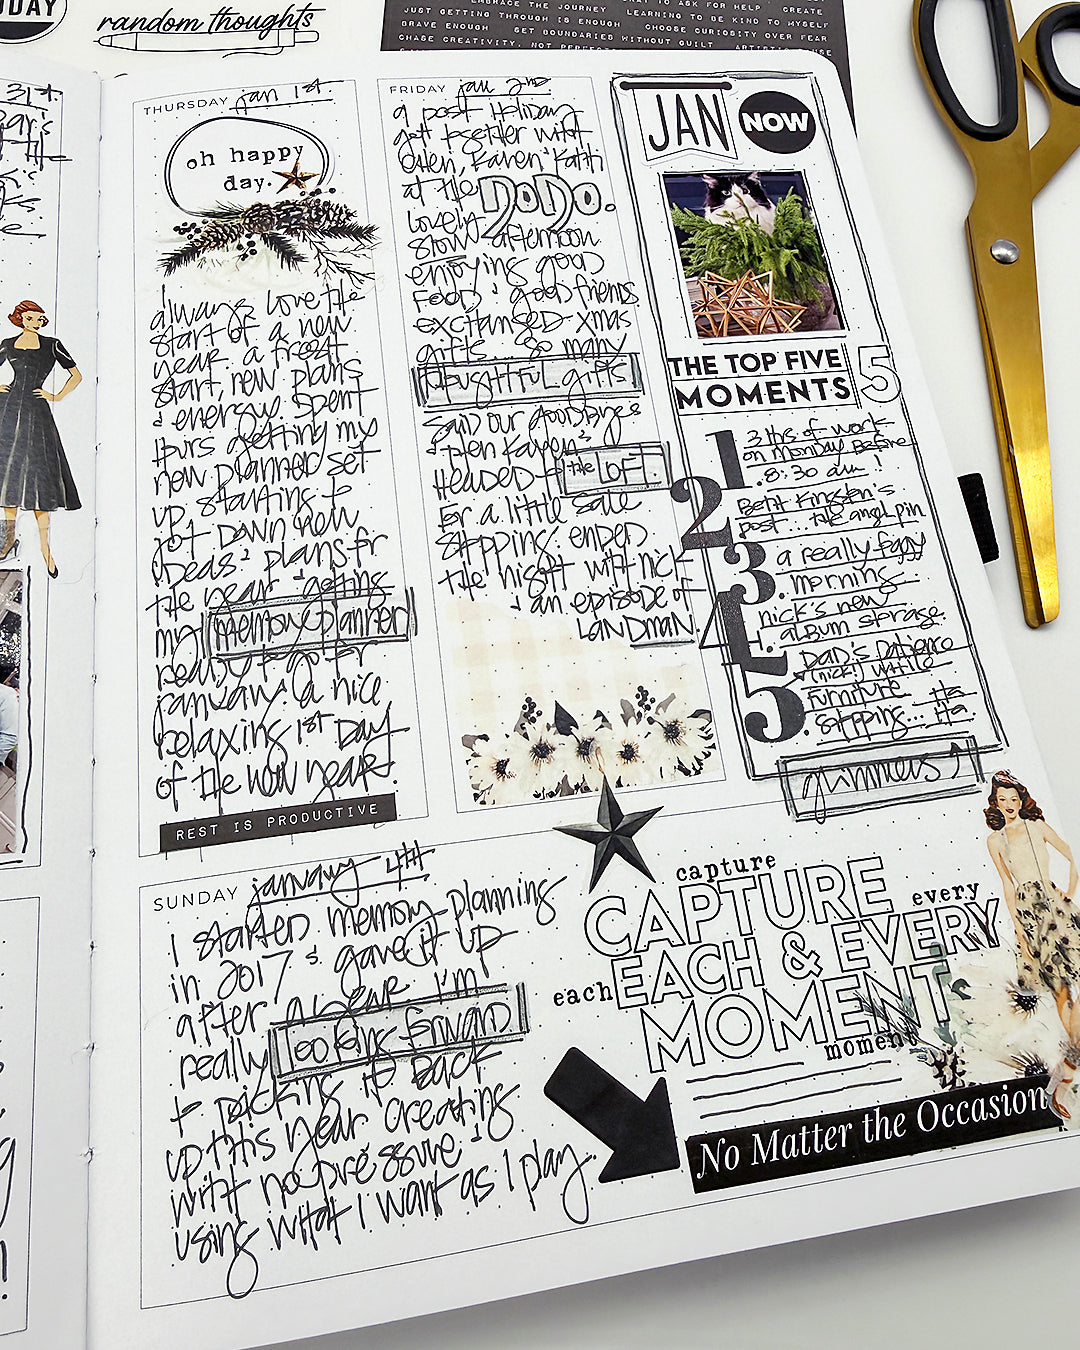 ODAY
random thoughts
EMBRACE THE JOURNEY
TO ASK FOR HELP
CREATE
JUST GETTING THROUGH IS ENOUGH
LEARNING TO BE KIND TO MYSELF
BRAVE ENOUGH
SET BOUNDARIES WITHOUT GUILT
CHOOSE CURIOSITY OVER FEAR
CHASE CREATIVITY, NOT
31st.
THURSDAY jan 1st.
oh happy
day.
always love the
start of a new
year. a fresh
start, new plans
& energy. spent
hrs getting my
new planner set
up starting to
jot down new
ideas & plans for
the year & getting
my memory planner
ready to go for
january. a nice
relaxing 1st day
of the new year.
REST IS PRODUCTIVE
FRIDAY jan 2nd
a post holiday
get together with
Karen & Kathi
at the DODO.
lovely
slow afternoon
enjoying good
food & good friends
exchanged xmas
gifts... so many
thoughtful gifts
said our goodbyes
& then Karen &
headed to the LOFT
for a little sale
shopping. ended
the night with nick
& an episode of
LANDMAN.
JAN NOW
THE TOP FIVE 5
MOMENTS
1. 3 hrs of work
on monday before
8:30 am!
2. Beth Kingston's
post... the angl pin
3. a really foggy
morning
4. nick's new
album storage.
5. Dad's patience
(nick!) while
furniture
shopping... Ha Ha.
glimmers
SUNDAY january 4th
I started memory planning
in 2017 & gave it up
after a year. I'm
really looking forward
to picking it back
up this year creating
with no pressure &
using what I want as I play.
capture
CAPTURE
every
EACH & EVERY
each
MOMENT
moment
No Matter the Occasion